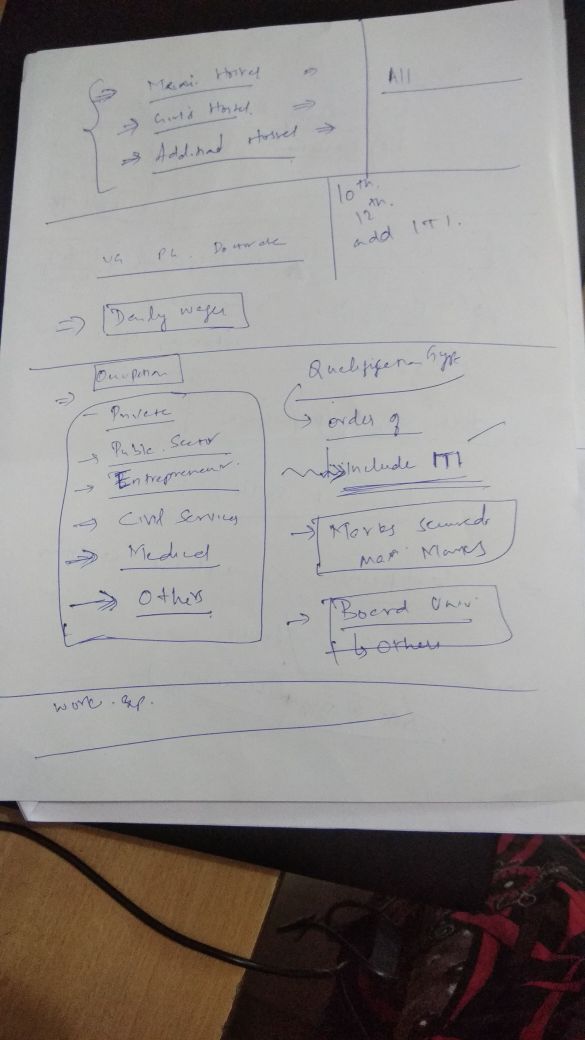 Main Hostel
Girls Hostel
Additional Hostel
All
10th
12th
add ITI.
UG PG Doctorate
Daily wages
Occupation
- Private
Public Sector
Entrepreneur
Civil Services
Medical
Others
Qualification Type
order of
include ITI
Marks secured
max Marks
Board Univ.
Others
work. exp.